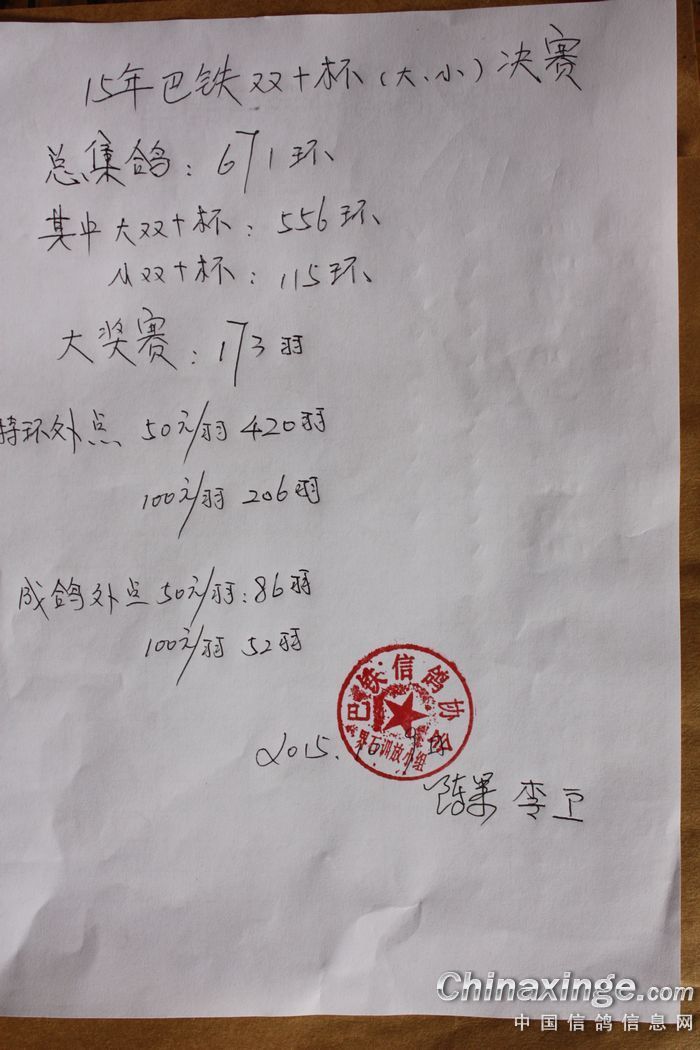 15年巴铁双十杯(大、小)决赛
总集鸽:671环
其中大双十杯:556环
小双十杯:115环
大奖赛:173羽
特环外点 50元/羽 420羽
100元/羽 206羽
成鸽外点 50元/羽:86羽
100元/羽 52羽
巴铁信鸽协会
界石训放小组
2015.
陈果 李卫
Chinaxinge.com
中国信鸽信息网